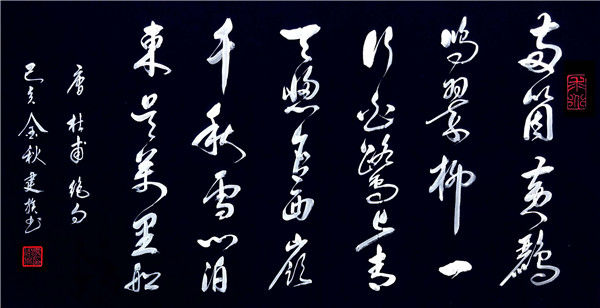 两箇黄鸝
鸣翠柳一
行白鹭上青
天窓含西嶺
千秋雪门泊
東吴萬里船
唐杜甫绝句
己亥金秋建书